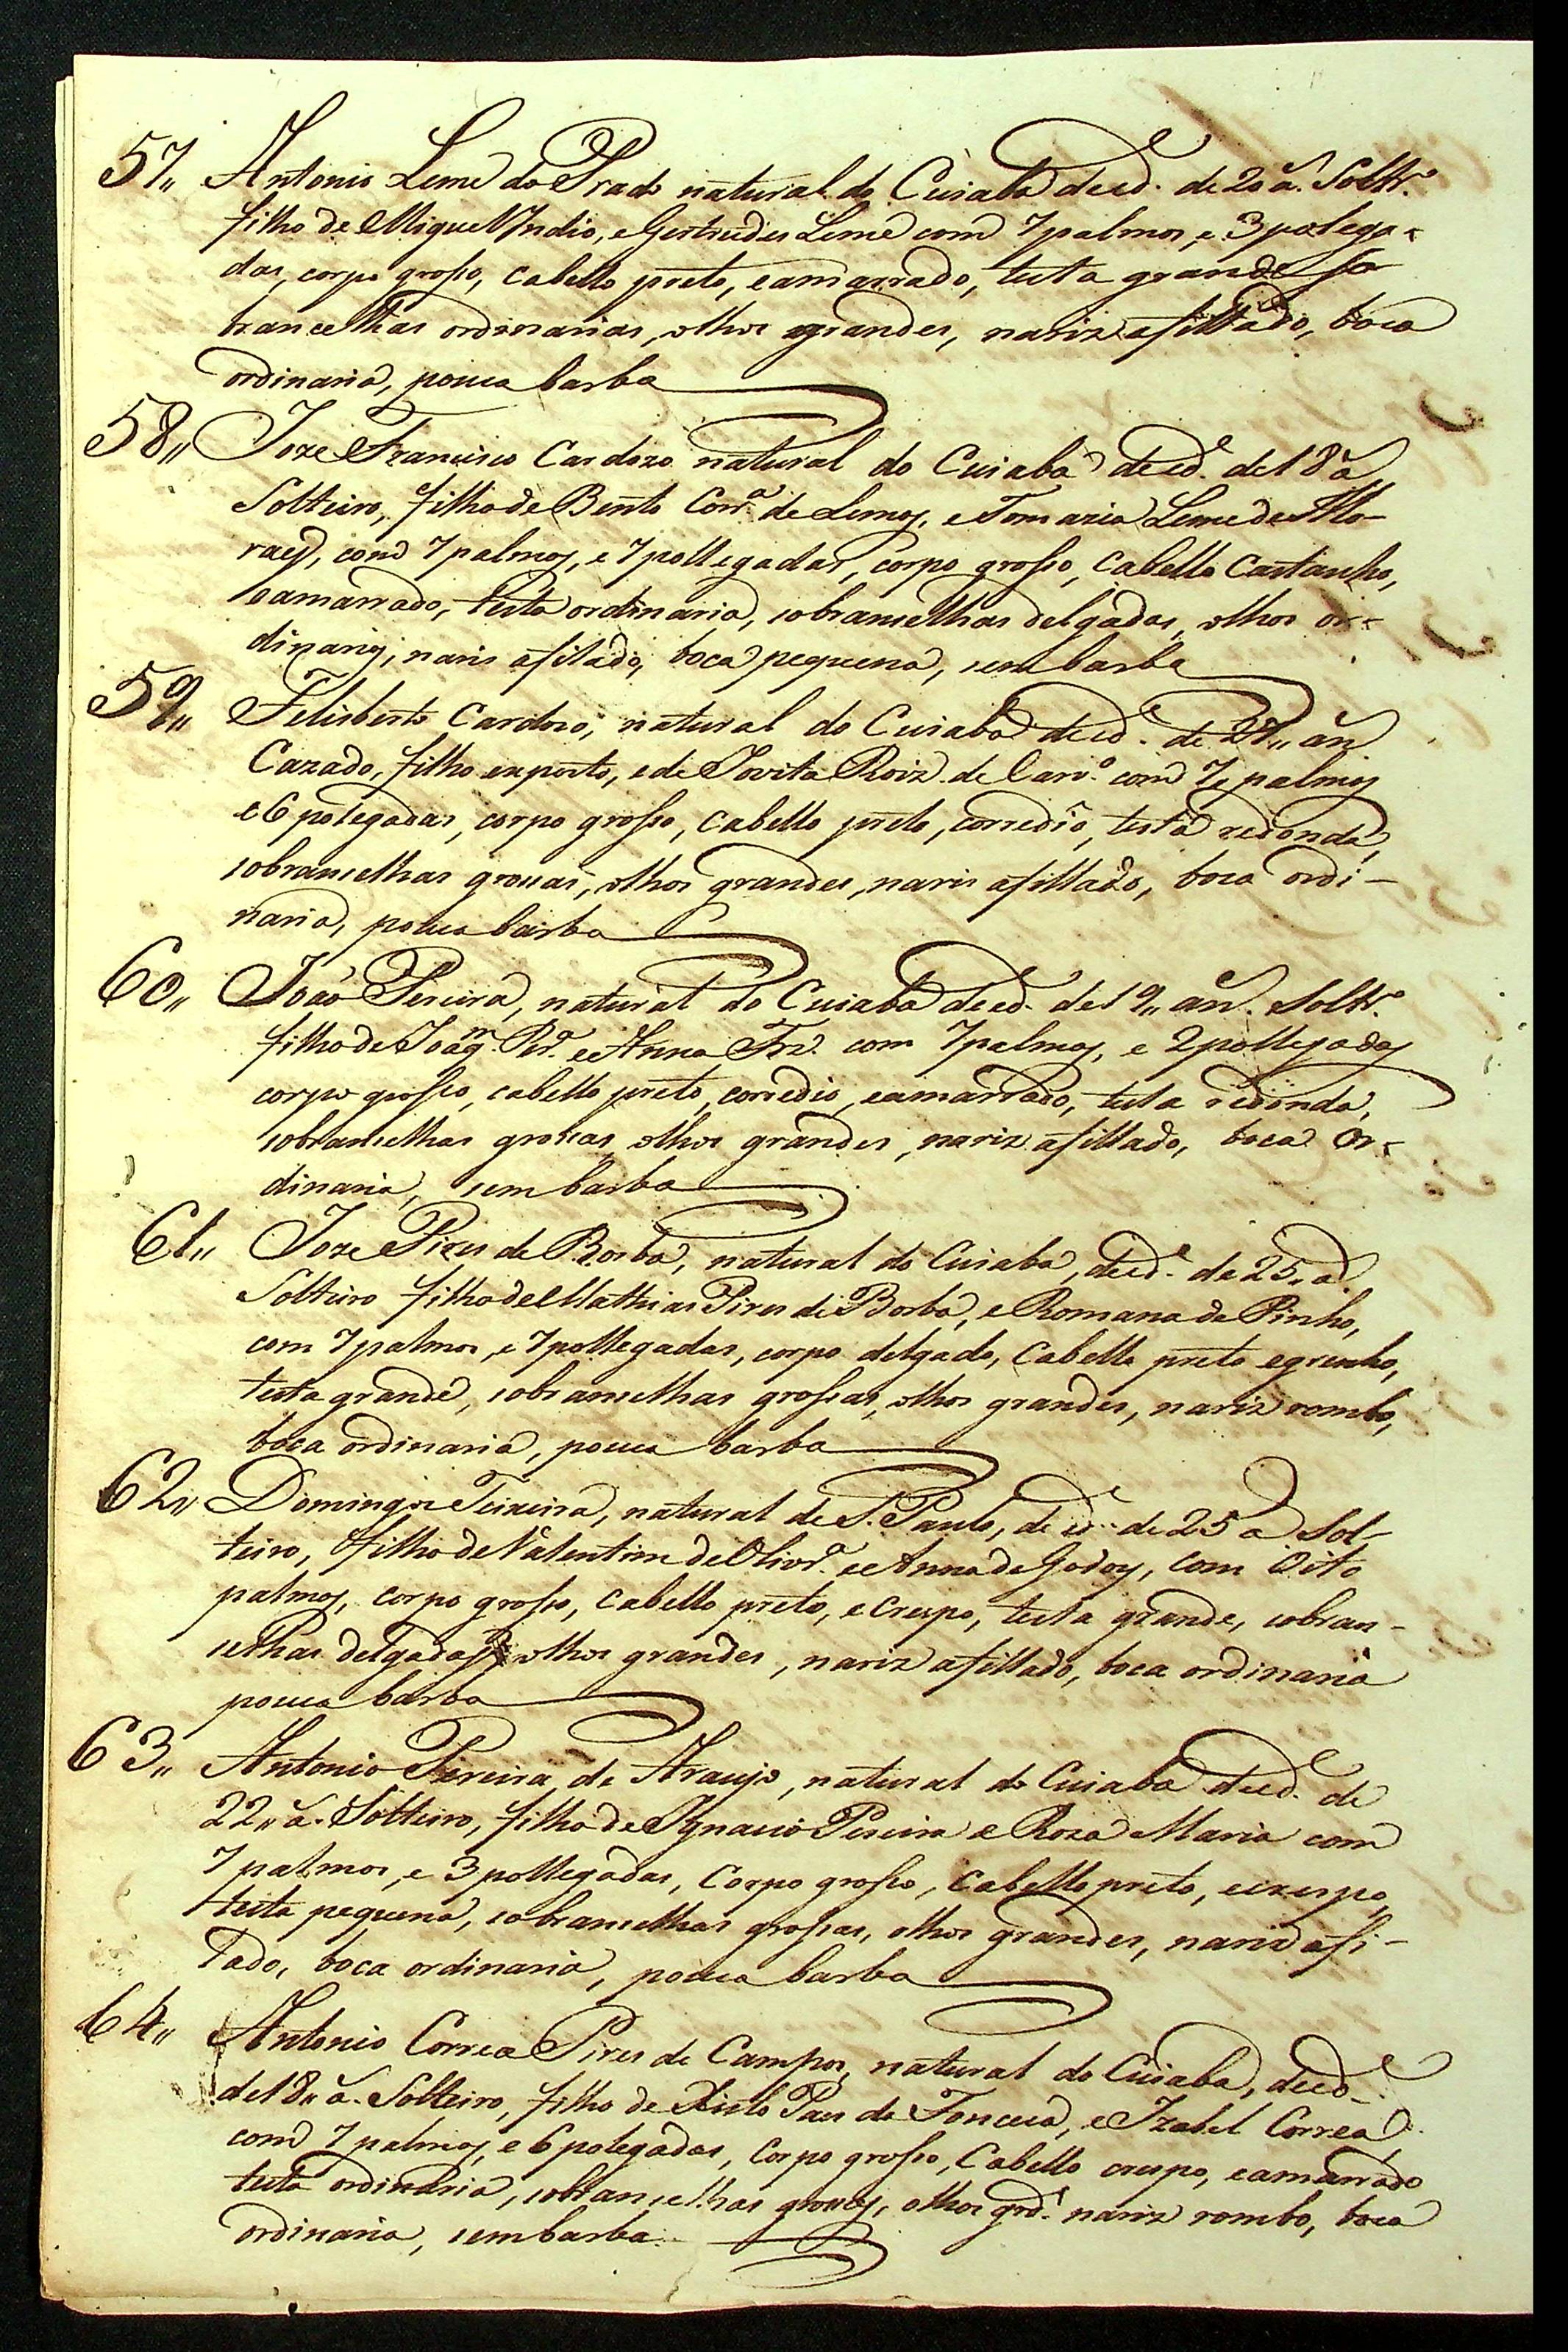 57,, Antonio Leme do Prado natural do Cuiabá de ed.e de 20 ã. Soltr.o
filho de Miguel Indio, e Gertrudes Leme com 7 palmos, e 3 polega-
das, corpo grosso, cabello preto, e amarrado, testa grande so
brancelhas ordinarias, olhos grandes, nariz afillado, boca
ordinaria, pouca barba
58,, Joze Francisco Cardozo natural do Cuiabá de ed.e de 18 ã
Solteiro, filho de Bento Corr.a de Lemos, e Tomazia Leme de Mo-
raes, com 7 palmos, e 7 pollegadas, corpo grosso, Cabello Castanho,
e amarrado, testa ordinaria, sobrancelhas delgadas, olhos or-
dinarios, naris afilado, boca pequena, sem barba
59,, Felisberto Cardozo, natural do Cuiabá de ed.e de 27,, an
Cazado, filho exposto, e de Jovita Roiz. de Carv.o com 7,, palmos
e 6 polegadas, corpo grosso, cabello preto, corredio, testa redonda,
sobrancelhas grossas, olhos grandes, naris afillado, boca ordi-
naria, pouca barba
60,, João Pereira, natural do Cuiabá de ed.e de 19,, an. Soltr.o
filho de Joaq.m Per.a e Anna Frz. com 7 palmos, e 2 pollegadas
corpo grosso, cabello preto, corredio, e amarrado, testa redonda,
sobrancelhas grossas, olhos grandes, nariz afillado, boca or-
dinaria, sem barba
61,, Joze Pires de Borba, natural do Cuiabá, de ed.e de 25,, a
Solteiro filho de Mathias Pires de Borba, e Romana de Pinho,
com 7 palmos, e 7 pollegadas, corpo delgado, Cabello preto e grenho,
testa grande, sobrancelhas grossas, olhos grandes, nariz rombo,
boca ordinaria, pouca barba
62,, Domingos Teixeira, natural de S. Paulo, de ed.e de 25 a Sol-
teiro, filho de Valentim de Olivr.a e Anna de Godoy, com Oito
palmos, corpo grosso, Cabello preto, e crespo, testa grande, sobran-
selhas delgadas olhos grandes, nariz afillado, boca ordinaria
pouca barba
63,, Antonio Pereira de Araujo, natural do Cuiabá de ed.e de
22,, ã. Solteiro, filho de Ignacio Pereira e Roza Maria com
7 palmos, e 3 pollegadas, Corpo grosso, Cabello preto, e crespo,
testa pequena, sobrancelhas grossas, olhos grandes, nariz afi-
lado, boca ordinaria, pouca barba
64,, Antonio Correa Pires de Campos, natural do Cuiabá, de ed.e
de 18,, ã. Solteiro, filho de Xisto Paes de Fonceca, e Izabel Correa
com 7 palmos, e 6 polegadas, Corpo grosso, Cabello crespo, e amarrado
testa ordinaria, sobrancelhas grossas, olhos grd.s nariz rombo, boca
ordinaria, sem barba.